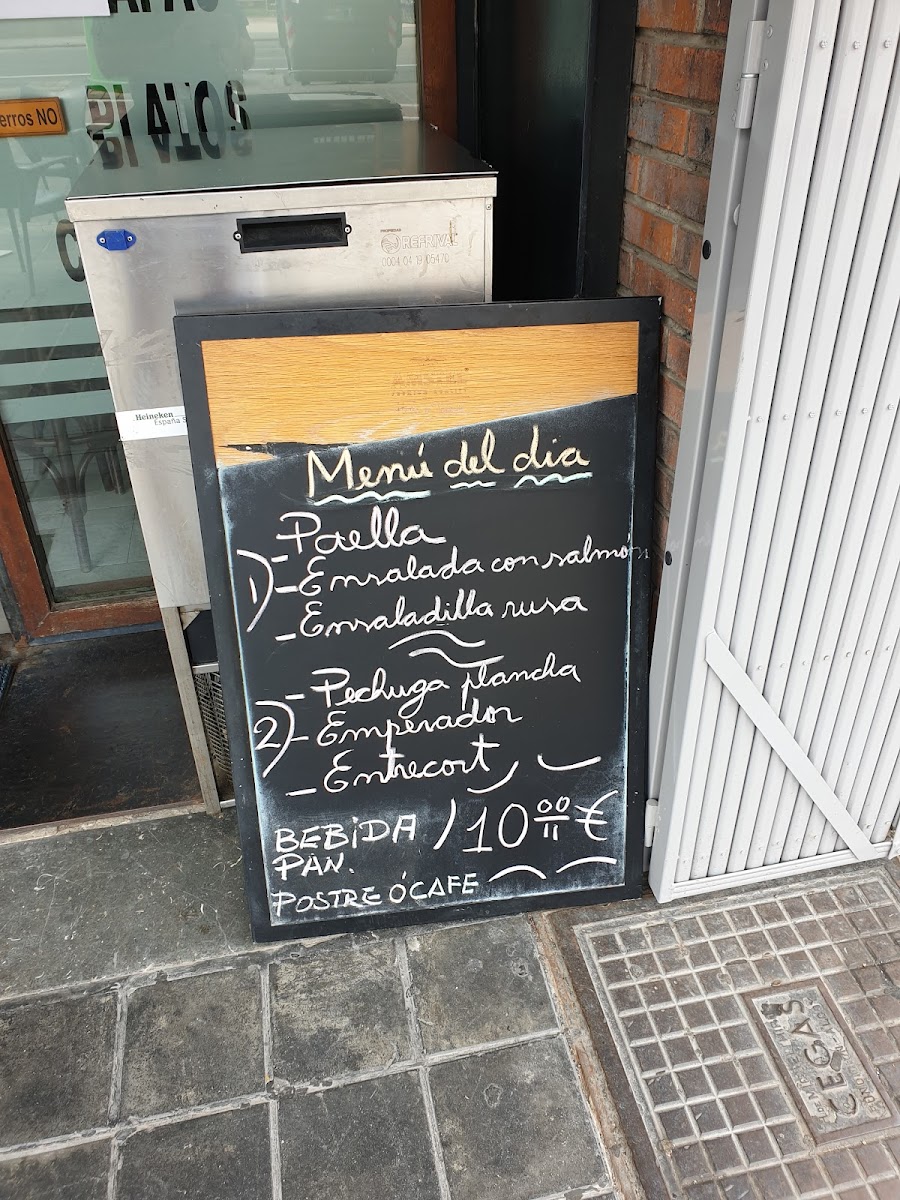 PLATOS
erros NO
PROPIEDAD
REFRIVAL
0004 04 19 05470
Heineken
España S
AMSTEL
Menú del dia
1) - Paella
- Ensalada con salmón
- Ensaladilla rusa
2) - Pechuga plancha
- Emperador
- Entrecort
BEBIDA ) 10 00 €
PAN.
POSTRE Ó CAFE
CEGAS